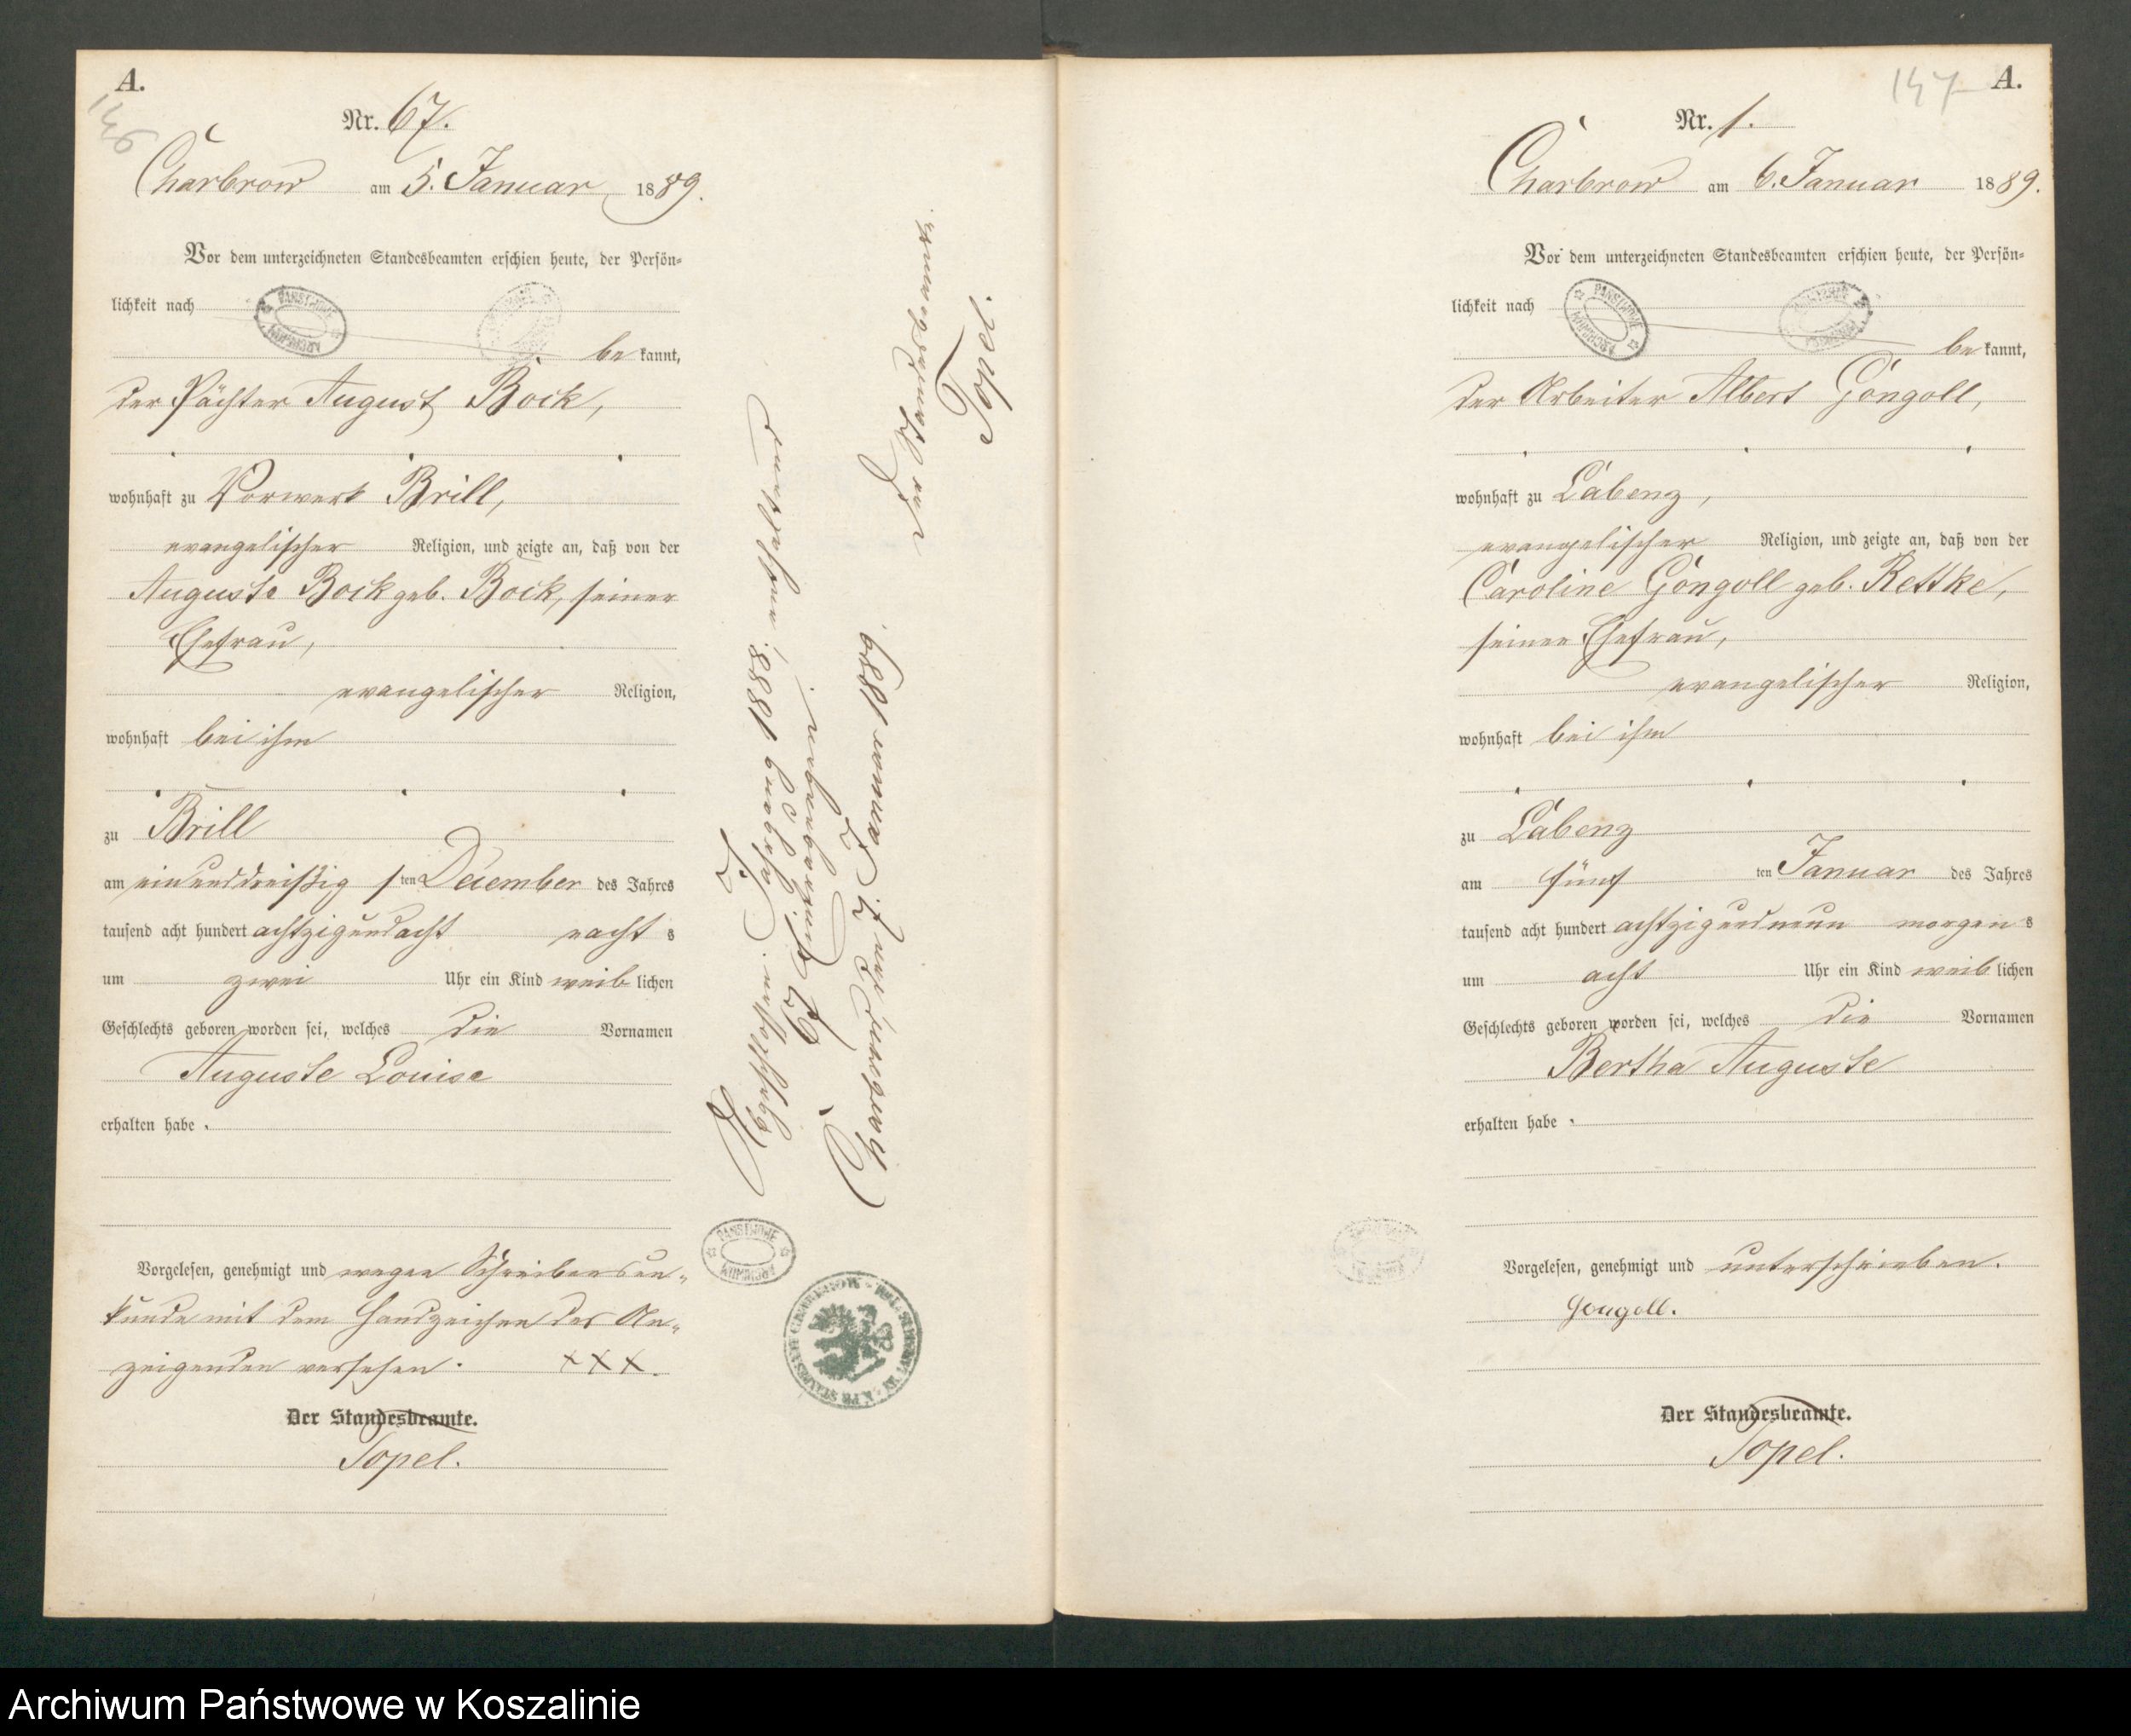 A.
136
Nr. 67.
Charbrow am 5. Januar 1889.
Vor dem unterzeichneten Standesbeamten erschien heute, der Persön-
lichkeit nach
be kannt,
der Pächter August Bock,
wohnhaft zu Vorwerk Brill,
evangelischer Religion, und zeigte an, daß von der
Auguste Bock geb. Bock, seiner
Ehefrau,
evangelischer Religion,
wohnhaft bei ihm
zu Brill
am einunddreißig sten December des Jahres
tausend acht hundert achtzigundacht nacht s
um zwei Uhr ein Kind weib lichen
Geschlechts geboren worden sei, welches die Vornamen
Auguste Louise
erhalten habe.
Vorgelesen, genehmigt und wegen Schreibensun-
kunde mit dem Handzeichen des An-
zeigenden versehen. XXX.
Der Standesbeamte.
Topel.
Abgeschlossen. Jahrgang 1888; enthaltend
67 Eintragungen.
Charbrow, den 7. Januar 1889.
Der Standesbeamte:
Topel.
147 A.
Nr. 1.
Charbrow am 6. Januar 1889.
Vor dem unterzeichneten Standesbeamten erschien heute, der Persön-
lichkeit nach
be kannt,
der Arbeiter Albert Gongoll,
wohnhaft zu Labenz,
evangelischer Religion, und zeigte an, daß von der
Caroline Gongoll geb. Rettke,
seiner Ehefrau,
evangelischer Religion,
wohnhaft bei ihm
zu Labenz
am fünf ten Januar des Jahres
tausend acht hundert achtzigundneun morgen s
um acht Uhr ein Kind weib lichen
Geschlechts geboren worden sei, welches die Vornamen
Bertha Auguste
erhalten habe.
Vorgelesen, genehmigt und unterschrieben.
Gongoll.
Der Standesbeamte.
Topel.
Archiwum Państwowe w Koszalinie